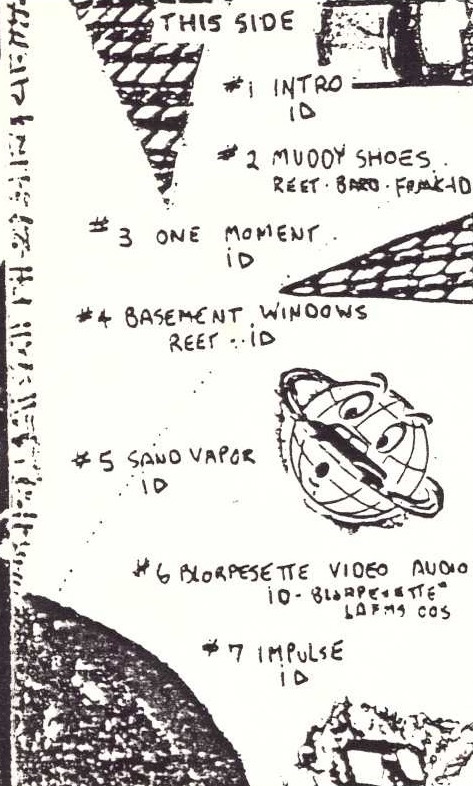 THIS SIDE
#1 INTRO
ID
#2 MUDDY SHOES
REET · BARD · FRANK · ID
#3 ONE MOMENT
ID
#4 BASEMENT WINDOWS
REET ·· ID
#5 SAND VAPOR
ID
#6 BLORPESETTE VIDEO AUDIO
ID - BLORPESETTE"
LAFMS COS
#7 IMPULSE
ID